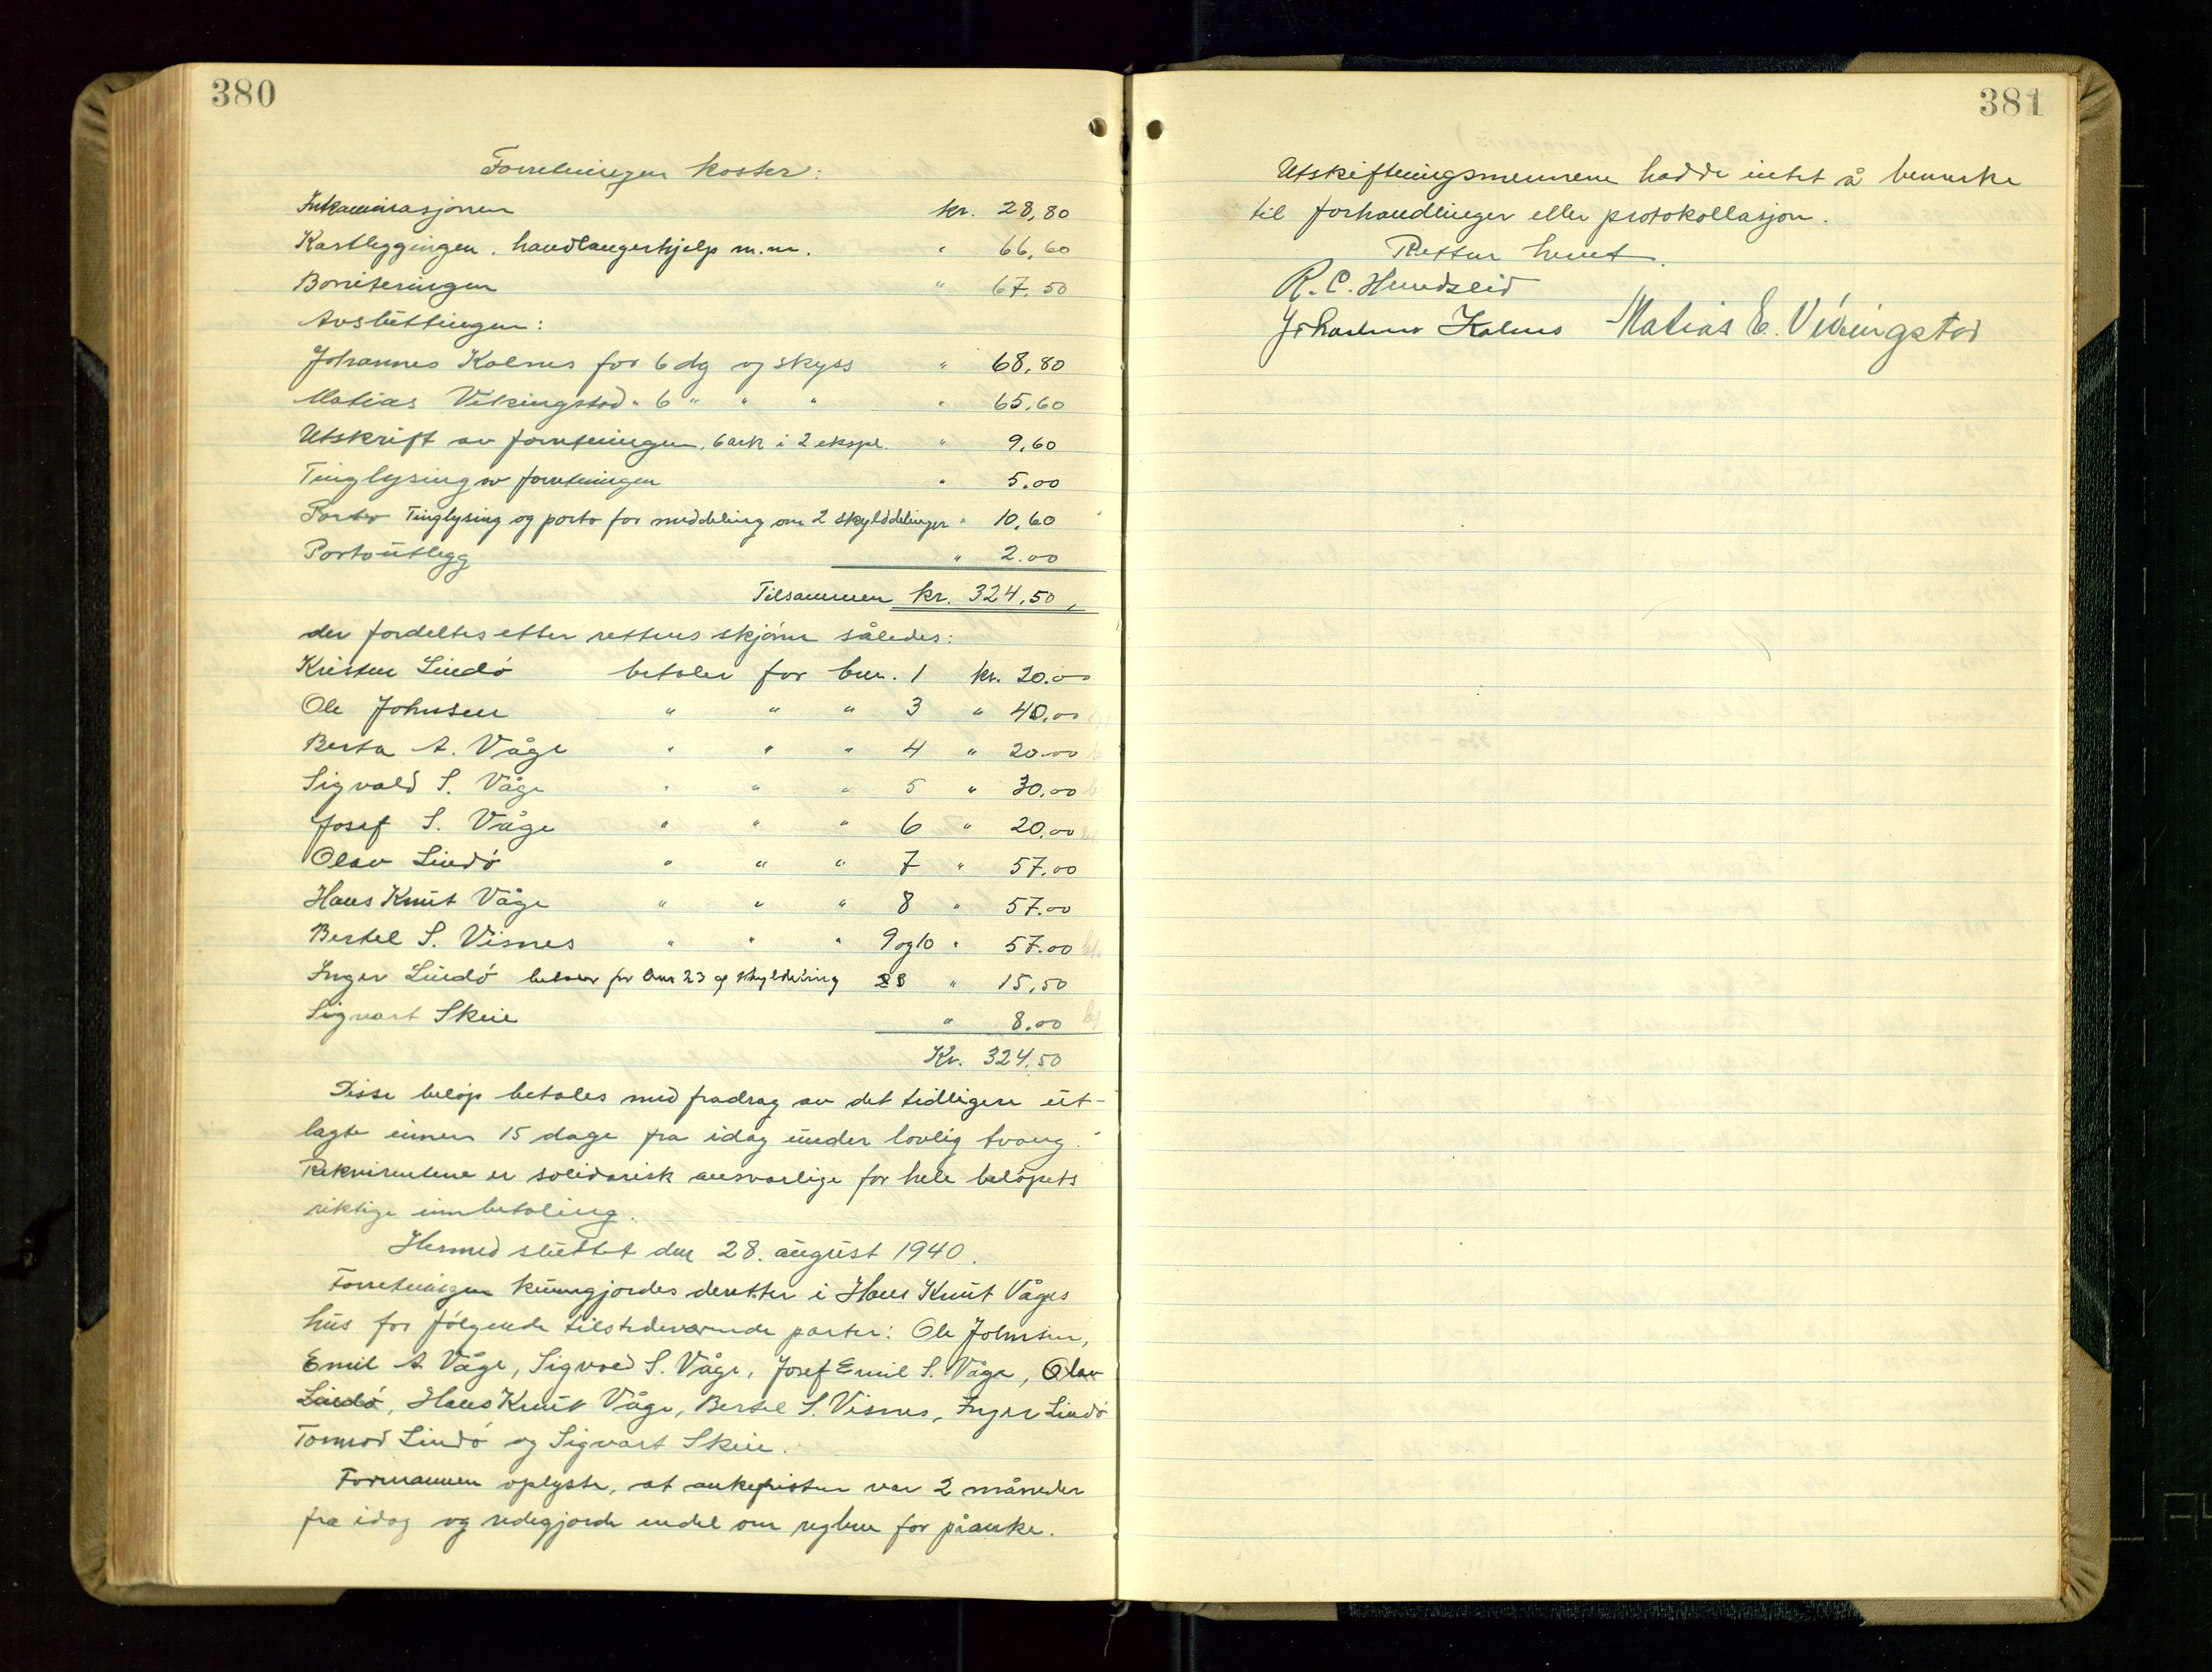 380
Forretningen koster:
Inkaminasjonen kr. 28,80
Kartleggingen, handlangerhjelp m.m. " 66,60
Boniteringen " 67,50
Avsluttingen:
Johannes Kalnes for 6 dg og skyss " 68,80
Matias Vikingstad " 6 " " " " 65,60
Utskrift av forretningen, 6 ark i 2 ekspl. " 9,60
Tinglysing av forretningen " 5.00
Porto Tinglysing og porto for meddeling om 2 skylddelinger " 10,60
Portoutlegg " 2.00
Tilsammen kr. 324,50,
der fordeltes etter rettens skjönn således:
Kristen Lindö betaler for bnr. 1 kr. 20.00
Ole Johnsen " " " 3 " 40.00
Berta A. Våge " " " 4 " 20.00
Sigvald S. Våge " " " 5 " 30.00
Josef S. Våge " " " 6 " 20.00
Olav Lindö " " " 7 " 57.00
Hans Knut Våge " " " 8 " 57.00
Bertel S. Visnes " " " 9 og 10 " 57.00
Inger Lindö betaler for bnr 23 og skylddeling " 15,50
Sigvart Skeie " 8.00
Kr. 324,50
Disse beløp betales med fradrag av det tidligere ut-
lagte innen 15 dage fra idag under lovlig tvang.
Rekvirentene er solidarisk ansvarlige for hele belöpets
riktige innbetaling.
Hermed sluttet den 28. august 1940.
Forretningen kunngjordes deretter i Hans Knut Våges
hus for fölgende tilstedeværende parter: Ole Johnsen,
Emil A. Våge, Sigvald S. Våge, Josef Emil S. Våge, Olav
Lindö, Hans Knut Våge, Bertel S. Visnes, Inger Lindö
Tormod Lindö og Sigvart Skeie.
Formannen oplyste, at ankefristen var 2 måneder
fra idag og redegjorde endel om reglene for påanke.
381
Utskiftningsmennene hadde intet å bemerke
til forhandlinger eller protokollasjon.
Retten hevet.
R. C. Hundseid
Johannes Kalnes Matias E. Vikingstad